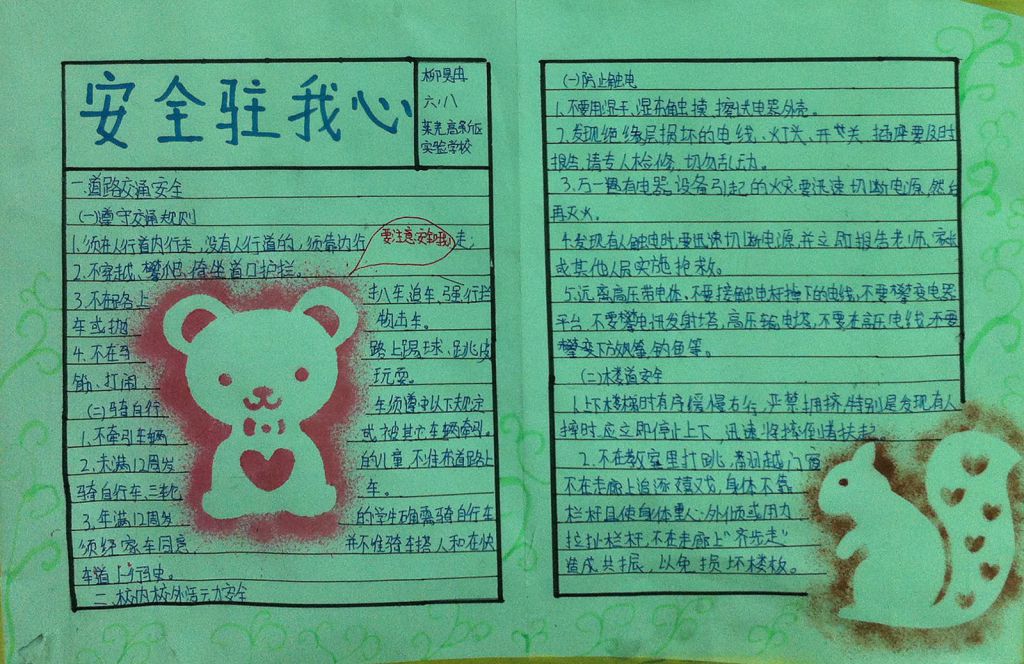 安全驻我心
柳昊冉
六八
莱芜高新区
实验学校
一.道路交通安全
(一)遵守交通规则
1.须在人行道内行走,没有人行道的,须靠边行走;
要注意安全哦
2.不穿越、攀爬、倚坐道口护拦。
3.不在路上扒车、追车、强行拦
车或抛物击车。
4.不在 路上踢球、跳皮
筋、打闹 玩耍。
(二)骑自行车须遵守以下规定
1.不牵引车辆或被其它车辆牵引。
2.未满12周岁的儿童,不准在道路上
骑自行车、三轮车。
3.年满12周岁的学生确需骑自行车
须经家长同意,并不准骑车搭人和在快
车道上行驶。
二.校内校外活动安全
(一)防止触电
1.不要用湿手,湿布触摸、擦试电器外壳。
2.发现绝缘层损坏的电线、灯头、开关、插座要及时
报告,请专人检修,切勿乱动。
3.万一遇有电器设备引起的火灾,要迅速切断电源,然后
再灭火。
4.发现有人触电时,要迅速切断电源,并立即报告老师、家长
或其他人员实施抢救。
5.远离高压带电体,不要接触电杆撞下的电线,不要攀变电器
平台,不要攀电讯发射塔,高压输电塔,不要在高压电线
下放风筝,钓鱼等。
(二)木楼道安全
1.上下楼梯时有序缓慢右行,严禁拥挤,特别是发现有人
摔时,应立即停止上下,迅速将摔倒者扶起。
2.不在教室里打跳,翻越门窗
不在走廊上追逐嬉戏,身体不靠
栏杆且使身体重心外倾或用力
拉扯栏杆,不在走廊上"齐步走"
造成共振,以免损坏楼板。